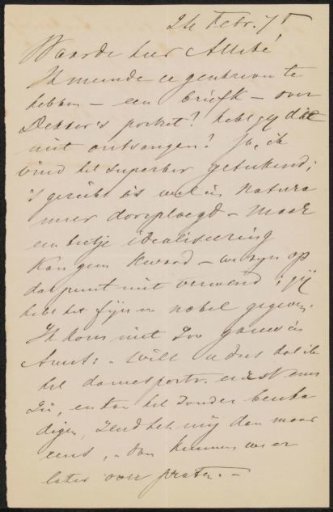 24 Febr. 75
Waarde heer Allebé
Ik meende u geschreven te
hebben – een briefk – over
Dekker's portret? hebt gij dat
niet ontvangen? Ja, ik
vind het superbe geteekend;
't gezicht is wel in natura
meer doorploegd – maar
een beetje idealiseering
kan geen kwaad – we zijn op
dat punt niet verwend; gij
hebt het fijn en nobel gegeven.
Ik kom niet zoo gauw in
Amst. – wilt u dus dat ik
het damesportr. eerst eens
zie, en kan het zonder bescha
digen, zend het mij dan maar
eens, – dan kunnen we er
later over praten. –